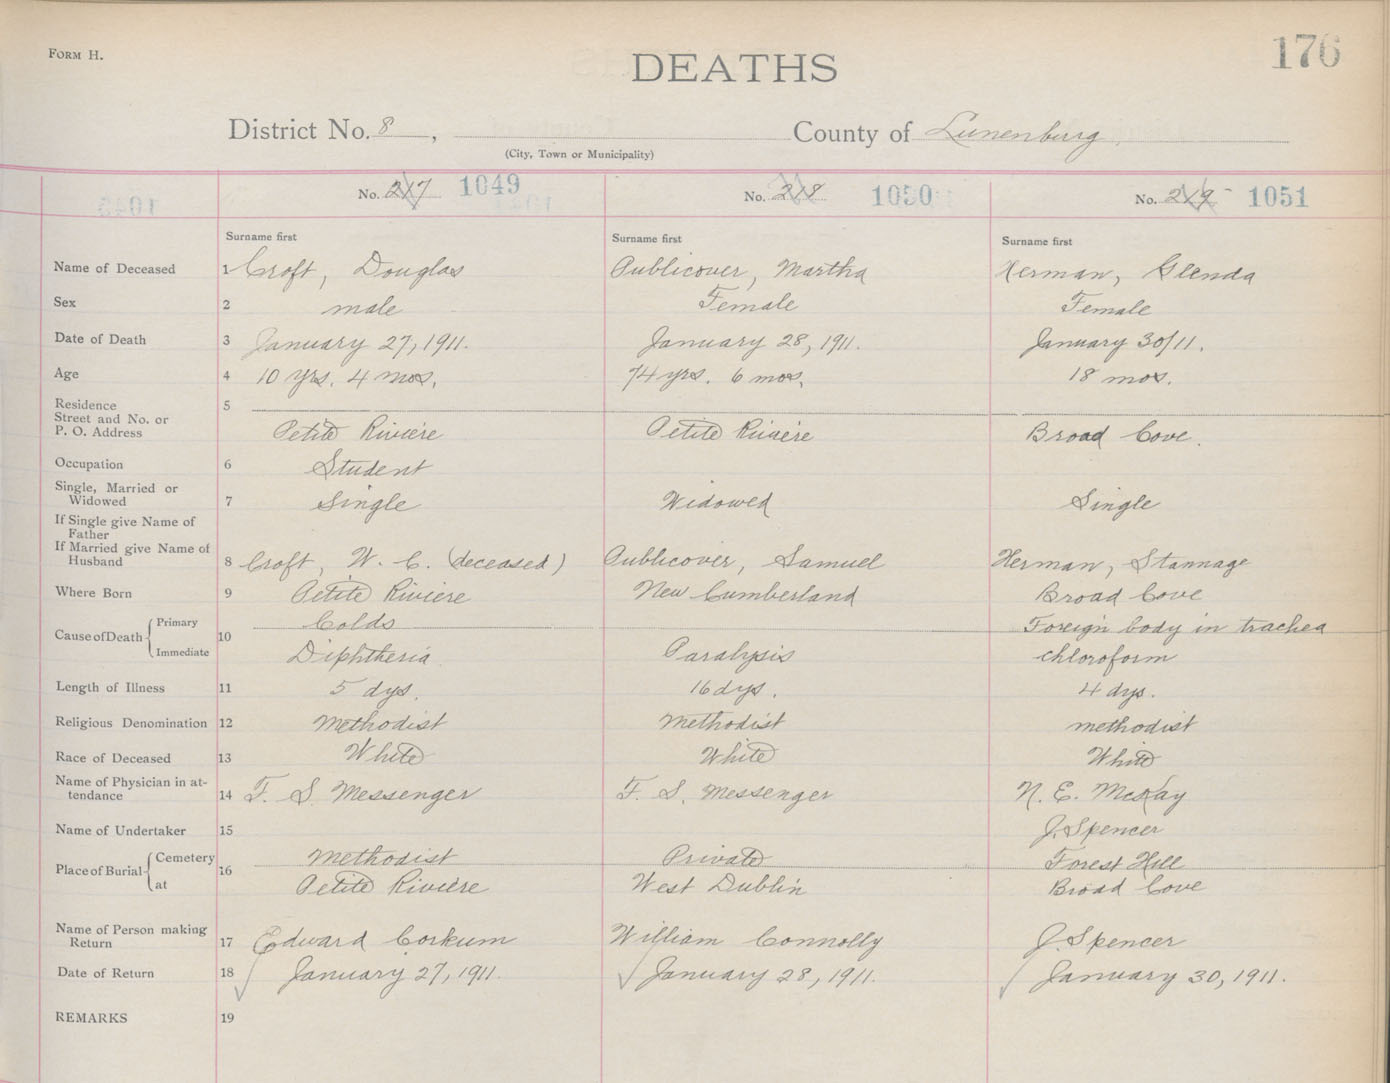 FORM H.
176
DEATHS
District No. 8, County of Lunenburg
(City, Town or Municipality)
No. 217 1049 No. 218 1050 No. 219 1051
Surname first Surname first Surname first
Name of Deceased 1 Croft, Douglas Publicover, Martha Herman, Glenda
Sex 2 male Female Female
Date of Death 3 January 27, 1911. January 28, 1911. January 30/11.
Age 4 10 yrs. 4 mos. 74 yrs. 6 mos. 18 mos.
Residence 5
Street and No. or
P. O. Address Petite Riviere Petite Riviere Broad Cove.
Occupation 6 Student
Single, Married or
Widowed 7 Single Widowed Single
If Single give Name of
Father
If Married give Name of
Husband 8 Croft, W. C. (deceased) Publicover, Samuel Herman, Stannage
Where Born 9 Petite Riviere New Cumberland Broad Cove
Cause of Death Primary 10 Colds Foreign body in trachea
Immediate Diphtheria Paralysis chloroform
Length of Illness 11 5 dys. 16 dys. 4 dys.
Religious Denomination 12 Methodist Methodist methodist
Race of Deceased 13 White White White
Name of Physician in at-
tendance 14 F. S. Messenger F. S. Messenger N. E. McKay
Name of Undertaker 15 J. Spencer
Place of Burial Cemetery 16 Methodist Private Forest Hill
at Petite Riviere West Dublin Broad Cove
Name of Person making
Return 17 Edward Corkum William Connolly J. Spencer
Date of Return 18 January 27, 1911. January 28, 1911. January 30, 1911.
REMARKS 19